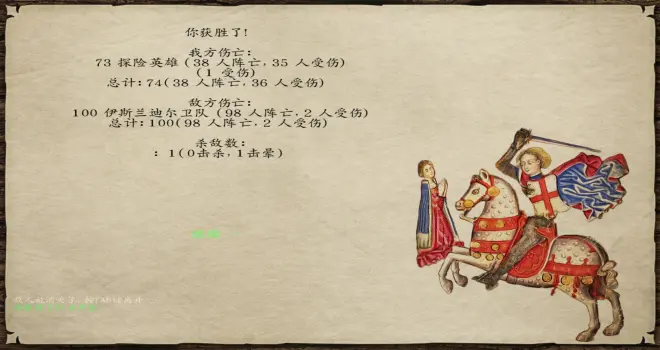 你获胜了!
我方伤亡:
73 探险英雄 (38 人阵亡, 35 人受伤)
(1 受伤)
总计: 74(38 人阵亡, 36 人受伤)
敌方伤亡:
100 伊斯兰迪尔卫队 (98 人阵亡, 2 人受伤)
总计: 100(98 人阵亡, 2 人受伤)
杀敌数:
: 1(0击杀, 1击晕)